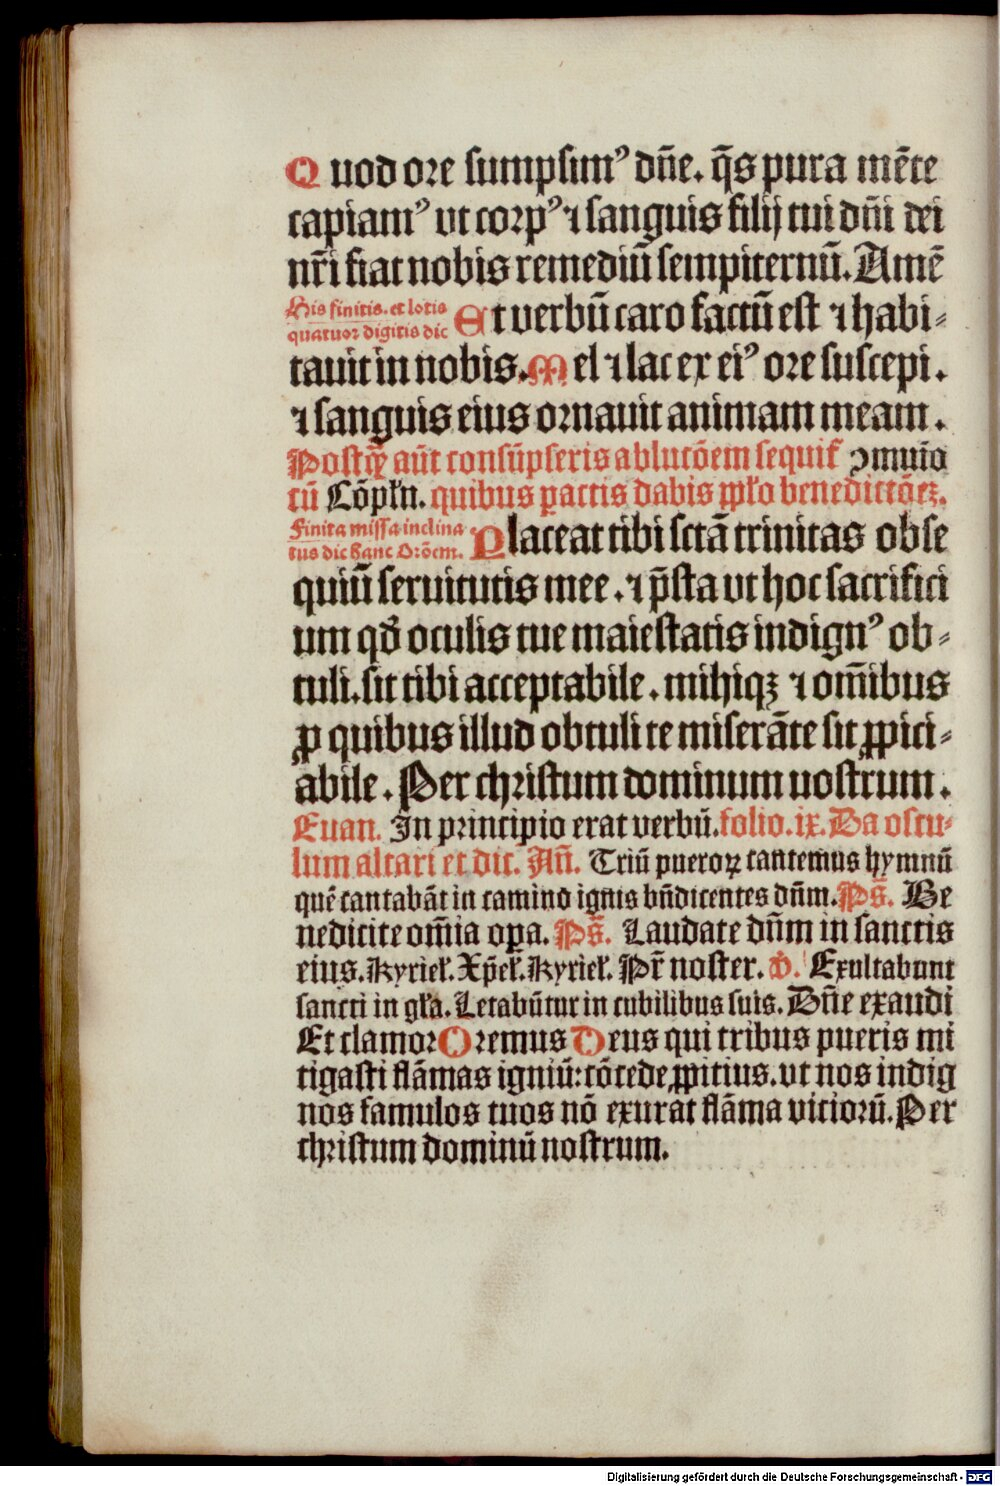 Quod ore sumpsimꝰ dn̄e. q̄s pura mēte
capiamꝰ vt corpꝰ ⁊ sanguis filij tui dn̄i dei
nr̄i fiat nobis remediū sempiternū. Amē
His finitis. et lotis
quatuor digitis dic
Et verbū caro factū est ⁊ habi-
tauit in nobis. Mel ⁊ lac ex eiꝰ ore suscepi.
⁊ sanguis eius ornauit animam meam.
Postꝙ̄ aūt consūpseris ablutōem sequit᷑ ꝯmuīo
cū Cōpłn. quibus ꝑactis dabis pp̄lo benedictōeꝫ.
Finita missa inclina
tus dic hanc Orōem.
Placeat tibi sctā trinitas obse
quiū seruitutis mee. ⁊ p̄sta vt hoc sacrifici
um qđ oculis tue maiestatis indignꝰ ob-
tuli. sit tibi acceptabile. mihiqꝫ ⁊ om̄ibus
ꝑ quibus illud obtuli te miserāte sit ꝓpici-
abile. Per christum dominum nostrum.
Euan. In principio erat verbū. folio. ix. Da oscu-
lum altari et dic. Añ. Triū pueroꝝ cantemus hymnū
quē cantabāt in camino ignis bn̄dicentes dn̄m. Ps̄. Be
nedicite om̄ia oꝑa. Ps̄. Laudate dn̄m in sanctis
eius. Kyrieł. Xp̄eł. Kyrieł. Pr̄ noster. ꝟ. Exultabunt
sancti in gła. Letabūtur in cubilibus suis. Dn̄e exaudi
Et clamor Oremus Deus qui tribus pueris mi
tigasti flāmas igniū: cōcede ꝓpitius. vt nos indig
nos famulos tuos nō exurat flāma viciorū. Per
christum dominū nostrum.
Digitalisierung gefördert durch die Deutsche Forschungsgemeinschaft - DFG